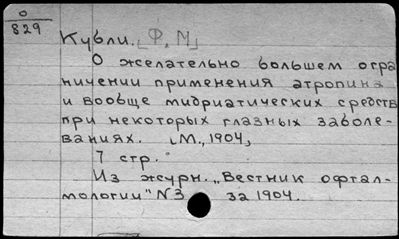 0
829
Кубли. [Ф. М]
О желательно большем огра
ничении применения атропина
и вообще мидриатических средств
при некоторых глазных заболе-
ваниях. [М., 1904]
7 стр.
Из журн. „Вестник офтал-
мологии" N3 за 1904.